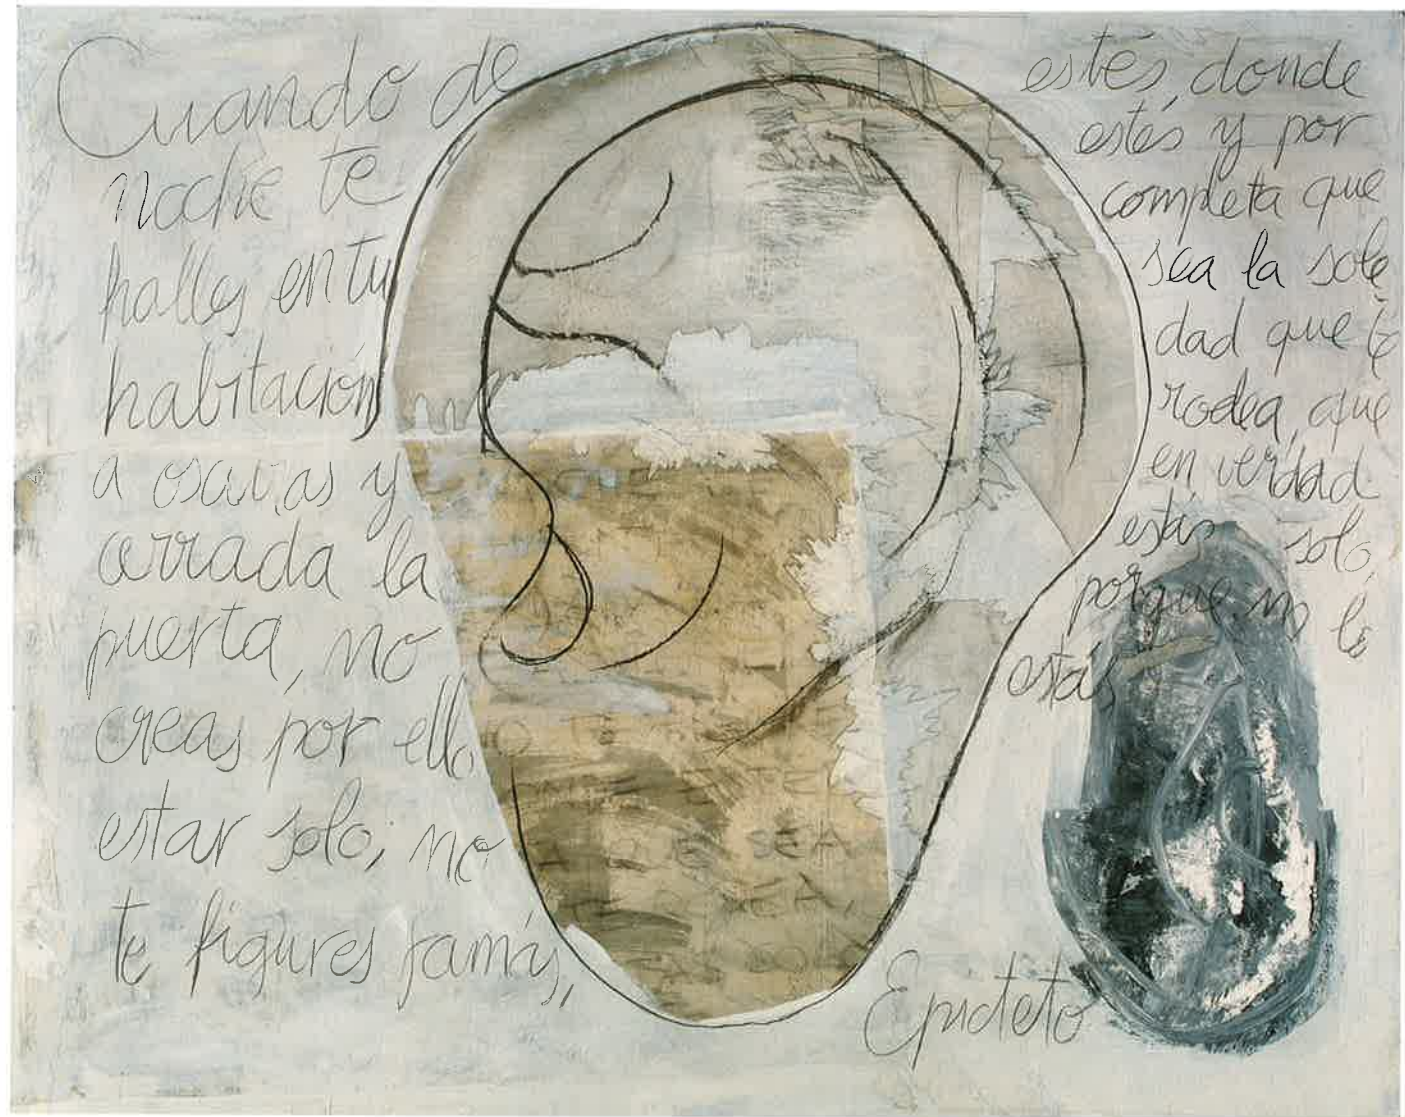 Cuando de
noche te
halles en tu
habitación
a oscuras y
cerrada la
puerta, no
creas por ello
estar solo; no
te figures jamás,
estés, donde
estés y por
completa que
sea la sole
dad que te
rodea, que
en verdad
estás solo,
porque no lo
estás
QUE SEA
SEA,
Epicteto